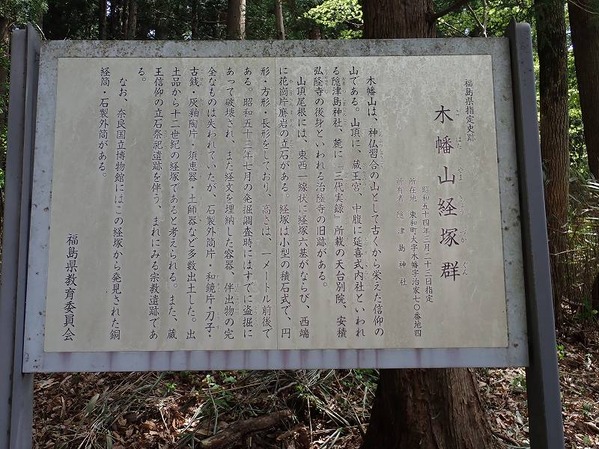 福島県指定史跡
木幡山経塚群
こはたやまきょうづかぐん
昭和五十四年三月二十三日指定
所在地 東和町大字木幡字治家七〇番地四
所有者 隠津島神社
木幡山は、神仏習合の山として古くから栄えた信仰の
山である。山頂に、蔵王宮、中腹に延喜式内社といわれ
る隠津島神社、麓に「三代実録」所載の天台別院、安積
弘隆寺の後身といわれる治陸寺の旧跡がある。
山頂尾根には、東西一線状に経塚六基がならび、西端
に花崗片磨岩の立石がある。経塚は小型の積石式で、円
形・方形・長形をしており、高さは、一メートル前後で
ある。昭和五十三年七月の発掘調査時にはすでに盗掘に
あって破壊され、また経文を埋納した容器、伴出物の完
全なものは失われていたが、石製外筒片・和鏡片・刀子・
古銭・灰釉陶片・須恵器・土師器など多数出土した。出
土品から十二世紀の経塚であると考えられる。また、蔵
王信仰の立石祭祀遺跡を伴う、まれにみる宗教遺跡であ
る。
なお、奈良国立博物館にはこの経塚から発見された銅
経筒・石製外筒がある。
福島県教育委員会